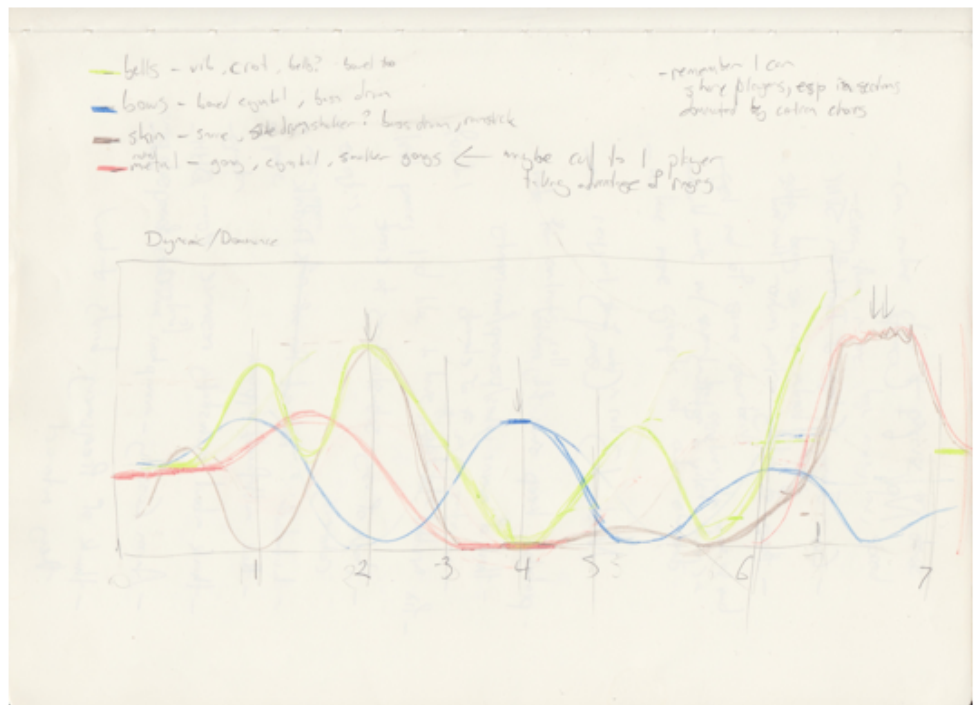 bells - vib, crot, bells? bowed too
bows - bowed cymbal, bass drum
skin - same, bass drum, rimstick
metal - gong, cymbal, smaller gongs ← maybe cut to 1 player
taking advantage of ranges
- remember I can
share players, esp in sections
dominated by certain choirs
Dynamic/Dominance
0 1 2 3 4 5 6 7